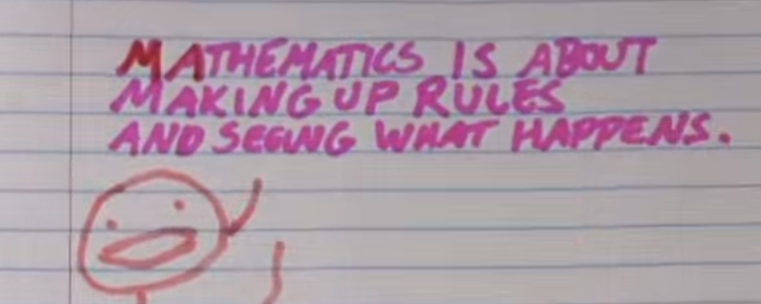 MATHEMATICS IS ABOUT
MAKING UP RULES
AND SEEING WHAT HAPPENS.